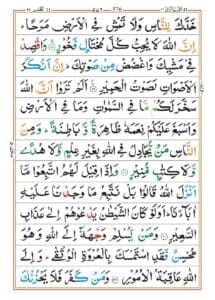 خَدَّكَ لِلنَّاسِ وَلَا تَمْشِ فِي الْاَرْضِ مَرَحًا
اِنَّ اللّٰهَ لَا يُحِبُّ كُلَّ مُخْتَالٍ فَخُوْرٍ وَاقْصِدْ
فِيْ مَشْيِكَ وَاغْضُضْ مِنْ صَوْتِكَ اِنَّ اَنْكَرَ
الْاَصْوَاتِ لَصَوْتُ الْحَمِيْرِ اَلَمْ تَرَوْا اَنَّ اللّٰهَ
سَخَّرَ لَكُمْ مَّا فِي السَّمٰوٰتِ وَمَا فِي الْاَرْضِ
وَاَسْبَغَ عَلَيْكُمْ نِعَمَهٗ ظَاهِرَةً وَّبَاطِنَةً وَمِنَ
النَّاسِ مَنْ يُّجَادِلُ فِي اللّٰهِ بِغَيْرِ عِلْمٍ وَّلَا هُدًى
وَّلَا كِتٰبٍ مُّنِيْرٍ وَاِذَا قِيْلَ لَهُمُ اتَّبِعُوْا مَآ
اَنْزَلَ اللّٰهُ قَالُوْا بَلْ نَتَّبِعُ مَا وَجَدْنَا عَلَيْهِ
اٰبَآءَنَا اَوَلَوْ كَانَ الشَّيْطٰنُ يَدْعُوْهُمْ اِلٰى عَذَابِ
السَّعِيْرِ وَمَنْ يُّسْلِمْ وَجْهَهٗٓ اِلَى اللّٰهِ وَهُوَ
مُحْسِنٌ فَقَدِ اسْتَمْسَكَ بِالْعُرْوَةِ الْوُثْقٰى وَاِلَى
اللّٰهِ عَاقِبَةُ الْاُمُوْرِ وَمَنْ كَفَرَ فَلَا يَحْزُنْكَ